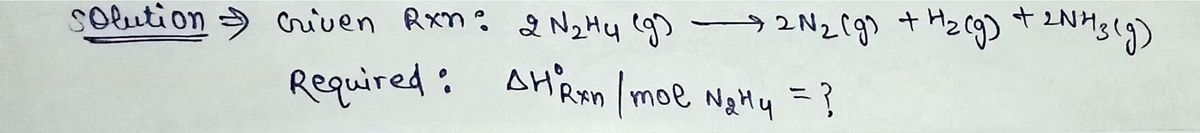 Solution ⇒ Given Rxn : 2 N₂H₄ (g) ⟶ 2 N₂ (g) + H₂ (g) + 2NH₃ (g)
Required : ΔH°Rxn / mol N₂H₄ = ?